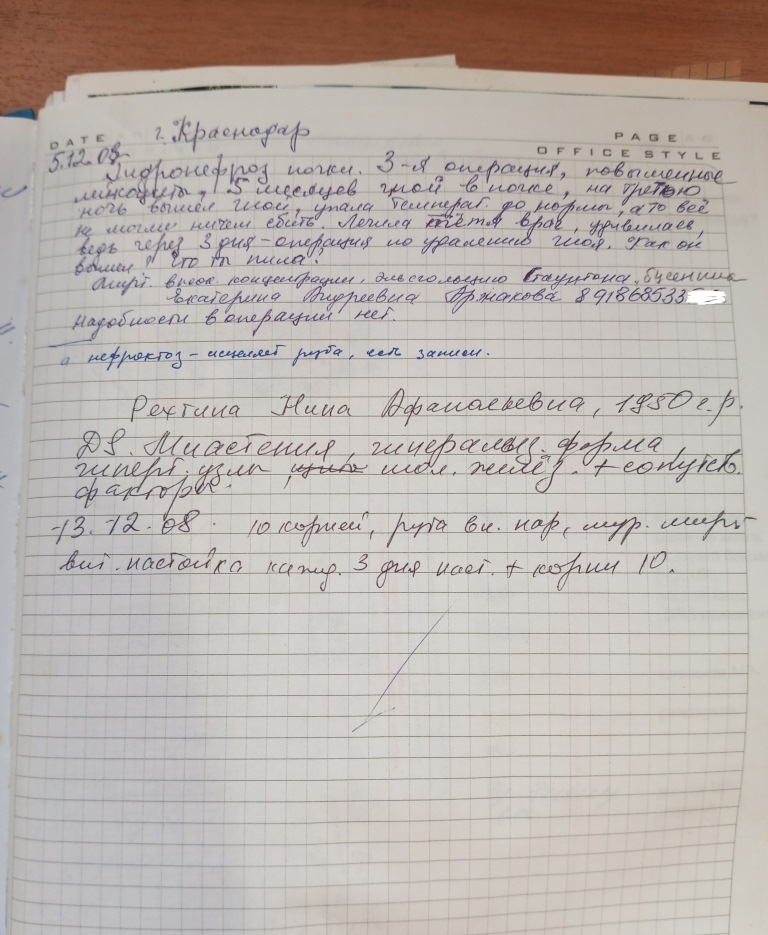 DATE
г. Краснодар
PAGE
OFFICE STYLE
5.12.08
Гидронефроз почки. 3-я операция, повышенные
лейкоциты, 5 месяцев гной в почке, на третью
ночь вышел гной, упала температ. до нормы, а то всё
не могли ничем сбить. Лечила тётя врач, удивилась,
ведь через 3 дня - операция по удалению гноя. Как он
вышел? Что ты пила?
Мирт. в неок. концентрации, эльсгольцию Стаунтона,
Екатерина Андреевна Аржакова 891868533
Надобности в операции нет.
а нефроктоз - исцеляет рута, есть записи.
Рехтина Нина Афанасьевна, 1950 г.р.
DS. Миастения, генерализ. форма,
гиперп. узлы щит. железы. + сопутств.
факторы.
13.12.08. 10 корней, рута вн. нар, мур. мирт
вит. настойка кажд. 3 дня наст. + корни 10.